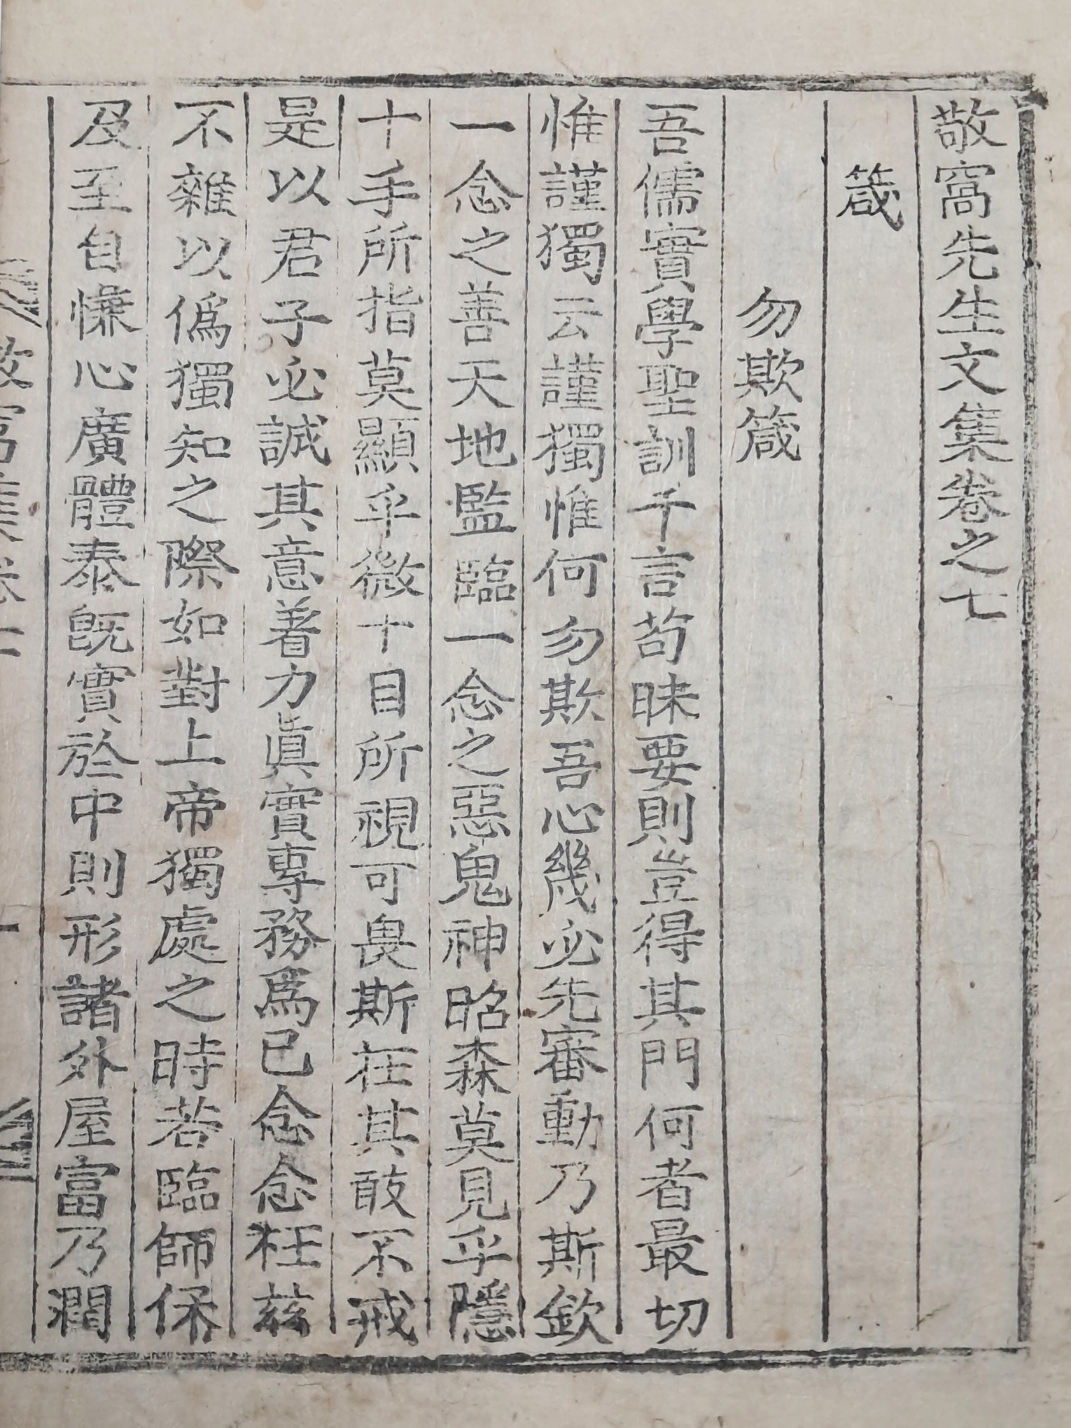 敬窩先生文集卷之七
箴
勿欺箴
吾儒實學聖訓千言苟昧要則豈得其門何者最切
惟謹獨云謹獨惟何勿欺吾心幾必先審動乃斯欽
一念之善天地監臨一念之惡鬼神昭森莫見乎隱
十手所指莫顯乎微十目所視可畏斯在其敢不戒
是以君子必誠其意着力眞實專務爲己念念在玆
不雜以僞獨知之際如對上帝獨處之時若臨師保
及至自慊心廣體泰旣實於中則形諸外屋富乃潤